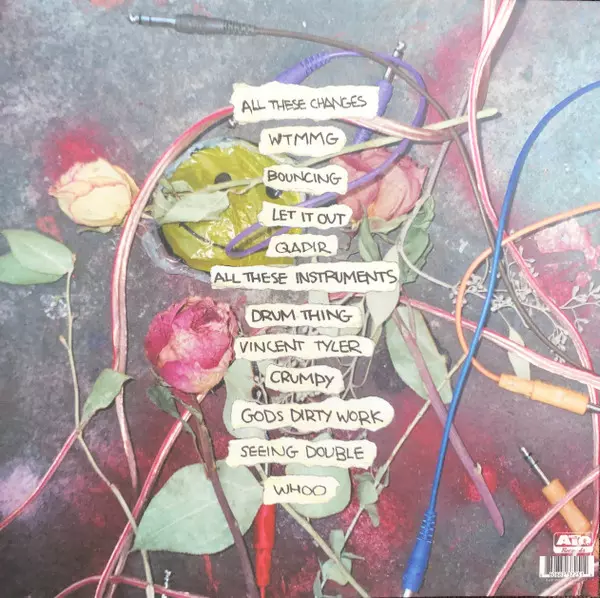 ALL THESE CHANGES
WTMMG
BOUNCING
LET IT OUT
QADIR
ALL THESE INSTRUMENTS
DRUM THING
VINCENT TYLER
CRUMPY
GODS DIRTY WORK
SEEING DOUBLE
WHOO
ATO
Records